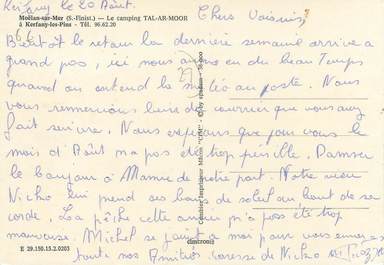 Kerfany le 20 Août.
Moëlan-sur-Mer (S.-Finist.) — Le camping TAL-AR-MOOR
à Kerfany-les-Pins - Tél. 96.62.20
Chers Voisins,
Bientôt le retour la dernière semaine arrive a
grand pas, ici nous avons eu du beau Temps
quand on entend la météo au poste. Nous
vous remercions bien du courrier que vous avez
fait suivre. Nous espérons que pour vous le
mois d'Août n'a pas été trop pénible. Donner
le bonjour à Mamie de notre part. Notre vieux
Nicko lui prend ses bains de soleil au bout de sa
corde. La pêche cette année n'a pas été trop
mauvaise. Michel se joint a moi pour vous envoyer
toute nos Amitiés caresse de Nicko
Combier Imprimeur Mâcon "CIM"
E 29.150.15.2.0203